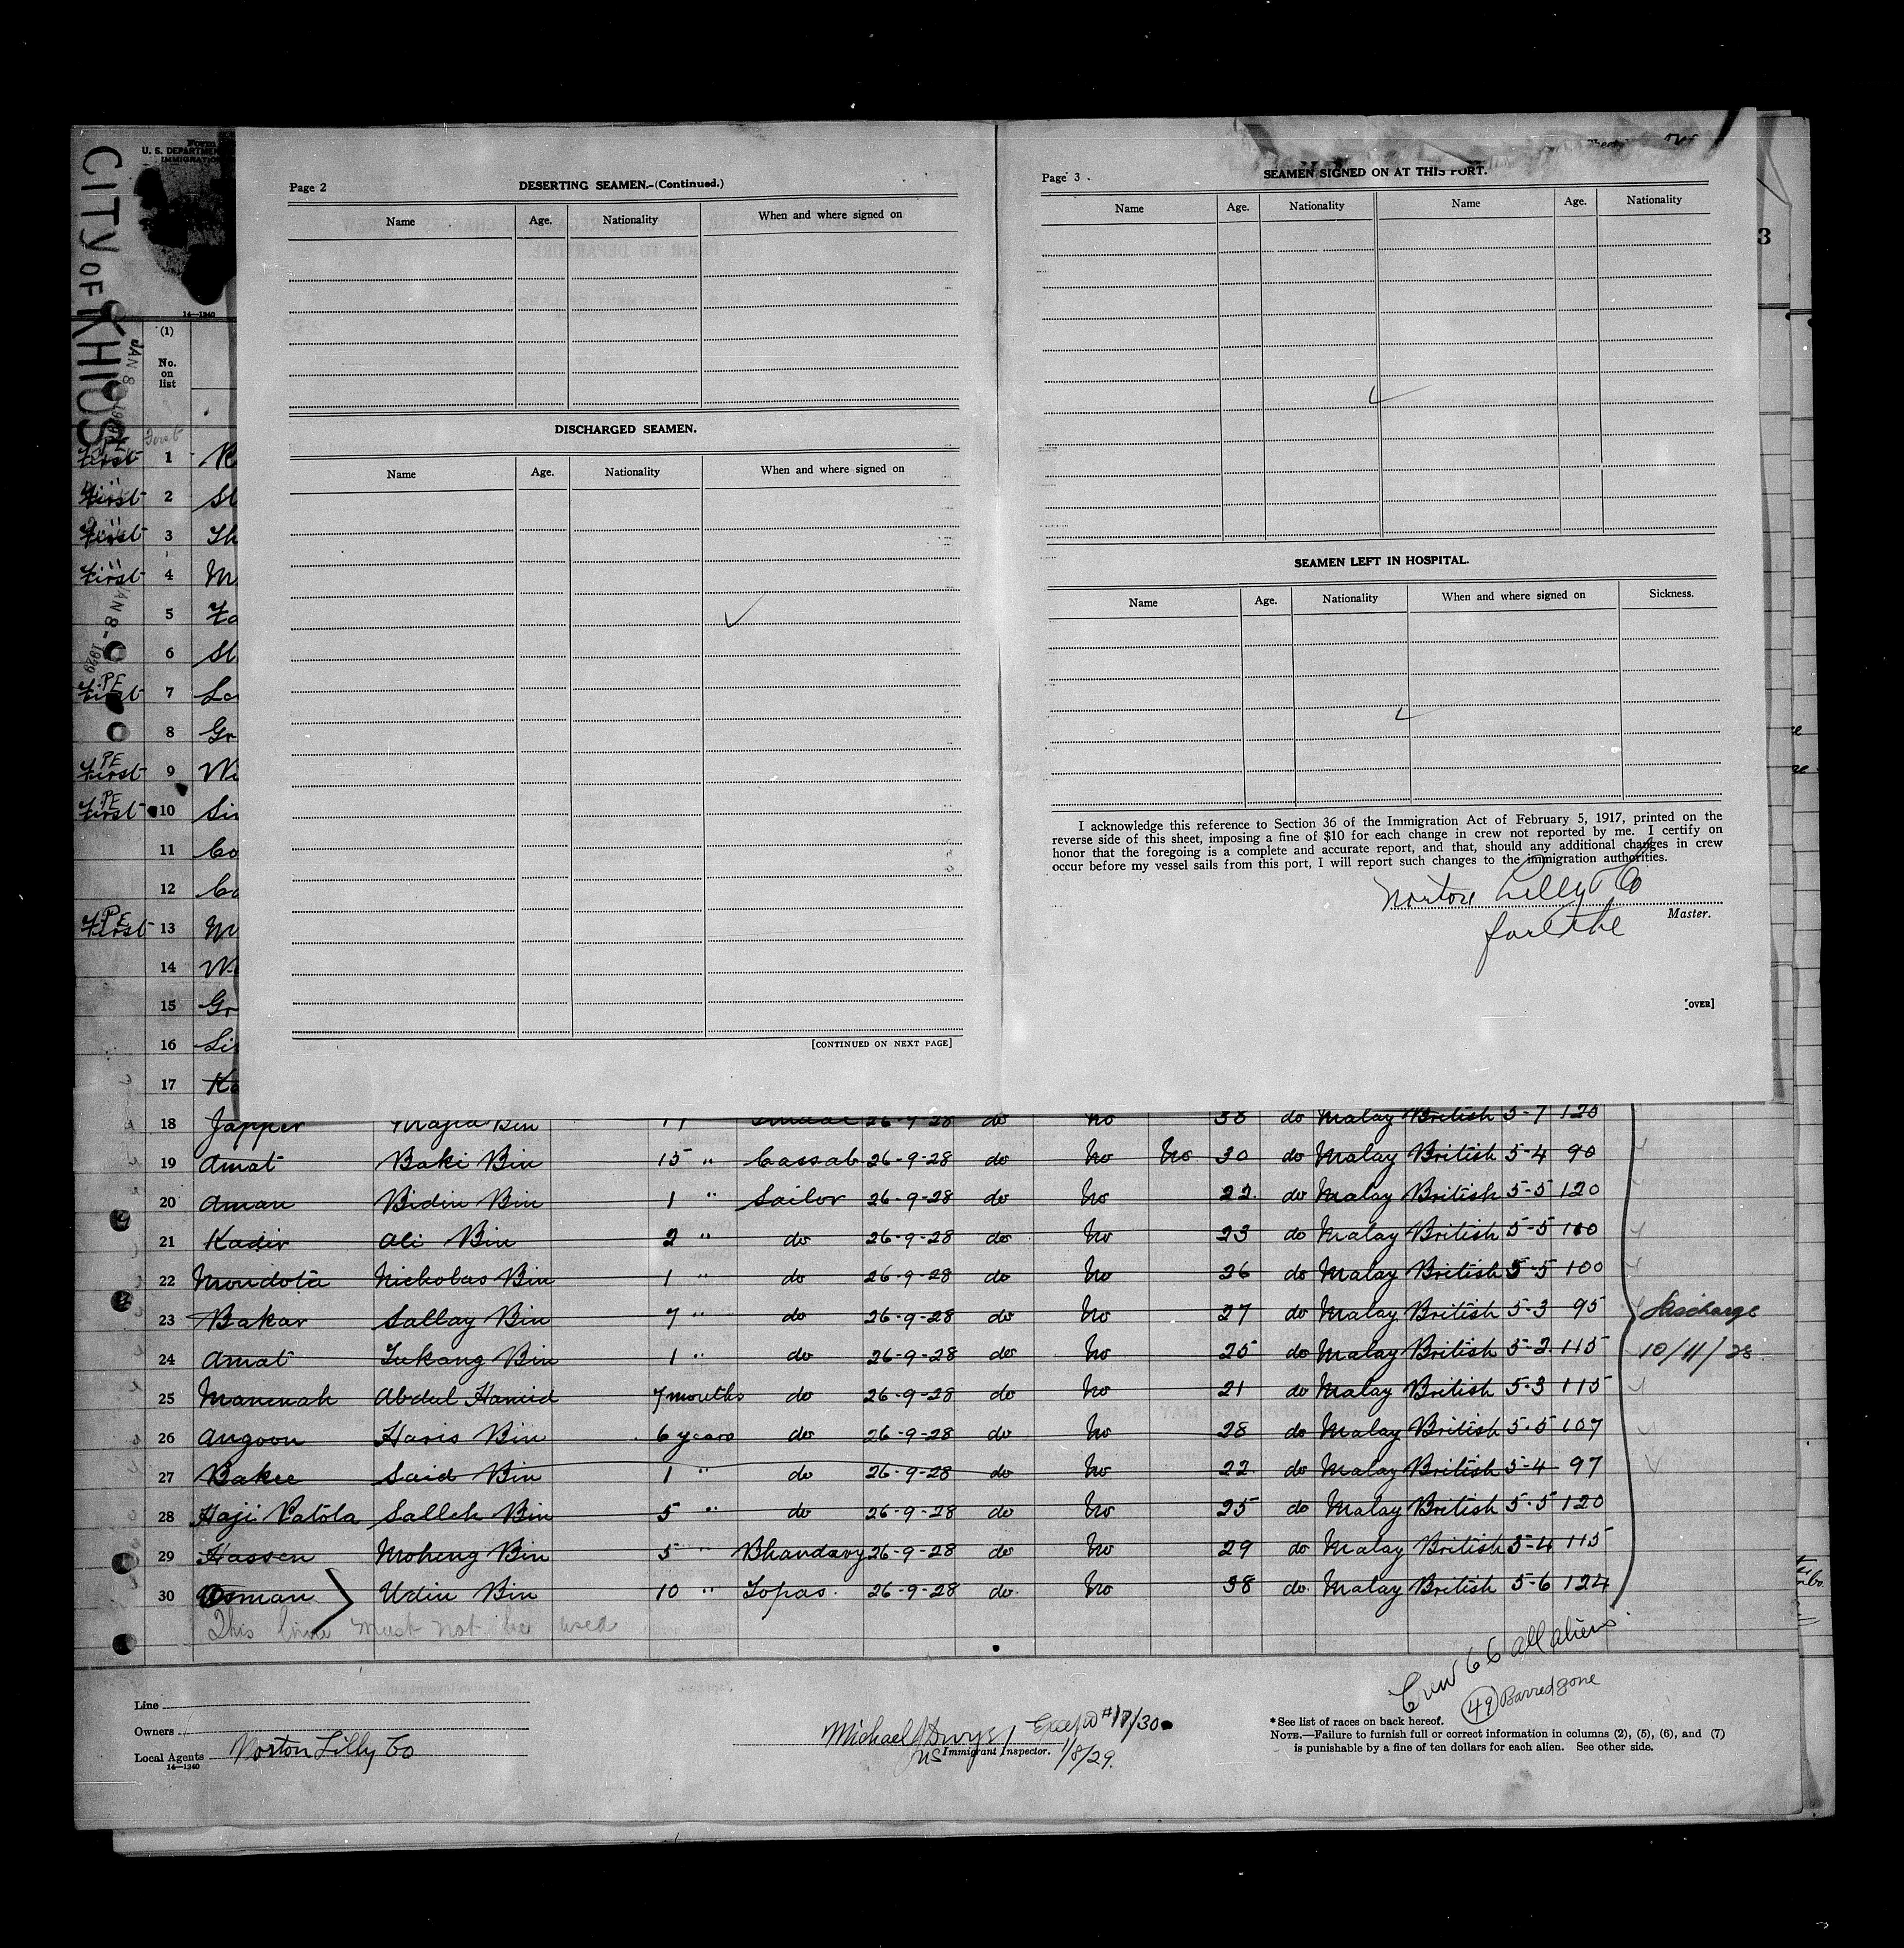 CITY OF KHIOS
JAN 8 1929
JAN 8 - 1929
Form
U. S. DEPARTMEN
IMMIGRATION
14—1240
(1)
No.
on
list
3
Page 2
DESERTING SEAMEN.—(Continued.)
Name Age. Nationality When and where signed on
DISCHARGED SEAMEN.
Name Age. Nationality When and where signed on
[CONTINUED ON NEXT PAGE]
Page 3
SEAMEN SIGNED ON AT THIS PORT.
Name Age. Nationality Name Age. Nationality
SEAMEN LEFT IN HOSPITAL.
Name Age. Nationality When and where signed on Sickness.
I acknowledge this reference to Section 36 of the Immigration Act of February 5, 1917, printed on the
reverse side of this sheet, imposing a fine of $10 for each change in crew not reported by me. I certify on
honor that the foregoing is a complete and accurate report, and that, should any additional changes in crew
occur before my vessel sails from this port, I will report such changes to the immigration authorities.
Norton Lilly & Co
Master.
for the
[OVER]
First PE First 1
First 2 St
First 3 Th
First 4 M
5 Fo
6 St
First PE 7 Lo
8 Gr
First PE 9 Wi
First PE 10 Sin
11 Co
12 Ca
First PE 13 M
14 W
15 Gr
16 Li
17 Ka
18 Japper Majid Bin 26-9-28 do no 38 do Malay British 5-7 120
19 Amat Baki Bin 15 " Cassab 26-9-28 do no no 30 do Malay British 5-4 90
20 Aman Bidin Bin 1 " Sailor 26-9-28 do no 22 do Malay British 5-5 120
21 Kadir Ali Bin 2 " do 26-9-28 do no 23 do Malay British 5-5 100
22 Mondota Nicholas Bin 1 " do 26-9-28 do no 26 do Malay British 5-5 100
23 Bakar Sallay Bin 7 " do 26-9-28 do no 27 do Malay British 5-3 95 Discharge
24 Amat Tukang Bin 1 " do 26-9-28 do no 25 do Malay British 5-2 115 10/11/28
25 Manenah Abdul Hamid 7 months do 26-9-28 do no 21 do Malay British 5-3 115
26 Angoon Haris Bin 6 years do 26-9-28 do no 28 do Malay British 5-5 107
27 Bakee Said Bin 1 " do 26-9-28 do no 22 do Malay British 5-4 97
28 Haji Patola Salleh Bin 5 " do 26-9-28 do no 25 do Malay British 5-5 120
29 Hassen Moheng Bin 5 " Bhandary 26-9-28 do no 29 do Malay British 5-4 115
30 Osman Udin Bin 10 " Topas. 26-9-28 do. no 38 do. Malay British 5-6 124
This line must not be used
Crew 66 all aliens
49 Barred zone
Line
Owners
Local Agents Norton Lilly Co
14—1240
Except # 17/30
US Immigrant Inspector. 1/8/29.
*See list of races on back hereof.
NOTE.—Failure to furnish full or correct information in columns (2), (5), (6), and (7)
is punishable by a fine of ten dollars for each alien. See other side.